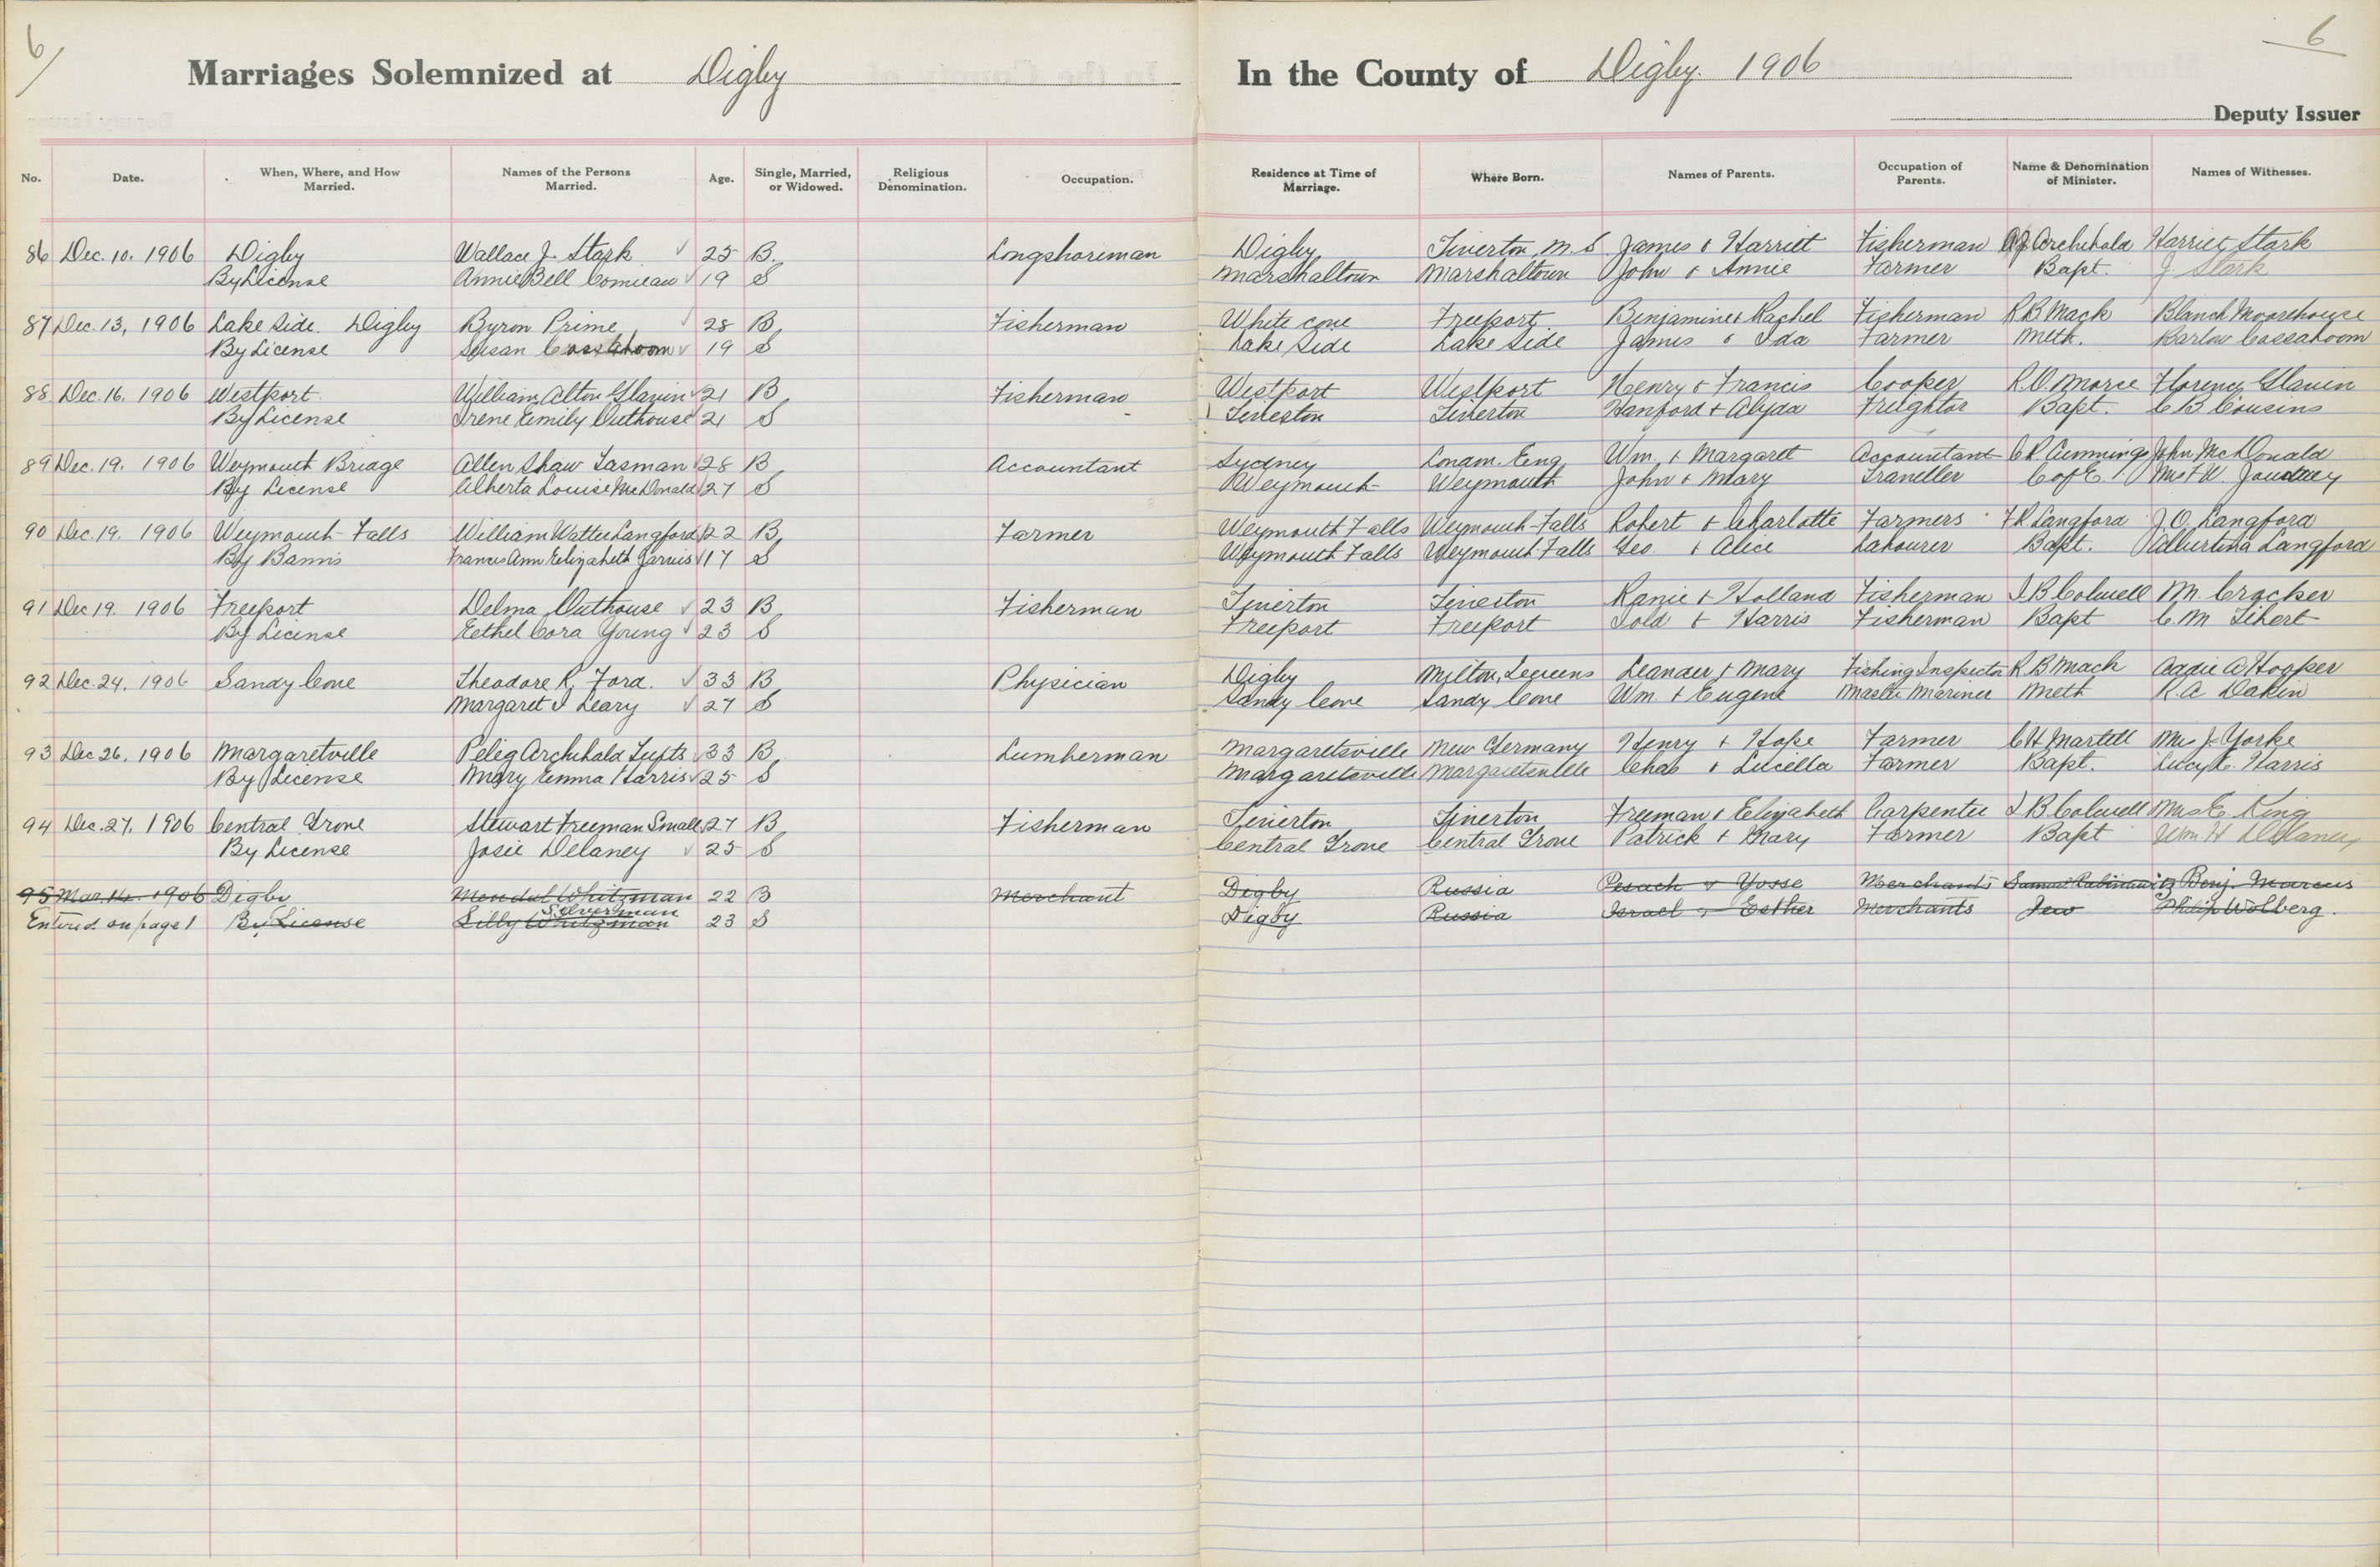 6
6
Marriages Solemnized at Digby In the County of Digby. 1906
Deputy Issuer
No. Date. When, Where, and How Married. Names of the Persons Married. Age. Single, Married, or Widowed. Religious Denomination. Occupation. Residence at Time of Marriage. Where Born. Names of Parents. Occupation of Parents. Name & Denomination of Minister. Names of Witnesses.
86 Dec. 10. 1906 Digby Wallace J. Stark 25 B. Longshoreman Digby Tiverton, N.S James & Harriet Fisherman A J Archibald Harriet Stark
By License Annie Bell Comieau 19 S Marshaltown Marshaltown John & Annie Farmer Bapt. J. Stark
87 Dec. 13, 1906 Lake Side. Digby Byron Prime 28 B, Fisherman White cove Freeport Benjamine & Rachel Fisherman R B Mack Blanch Moorehouse
By License Susan Cossaboom 19 S Lake Side Lake Side James & Ida Farmer Meth. Barlow Cassaboom
88 Dec. 16. 1906 Westport William Alton Glavin 21 B Fisherman Westport Westport Henry & Francis Cooper R.O. Morse Florence Glavin
By License Irene Emily Outhouse 21 S Tiverton Tiverton Hanford & Alyda Freightor Bapt. C B Cousins
89 Dec. 19. 1906 Weymouth Bridge Allen Shaw Tasman 28 B Accountant Sydney London. Eng Wm. & Margaret Accountant C R Cumming John McDonald
By License Alberta Louise McDonald 27 S Weymouth Weymouth John & Mary Traveller C of E.
90 Dec. 19. 1906 Weymouth Falls William Walter Langford 22 B, Farmer Weymouth Falls Weymouth Falls Robert & Charlotte Farmers F R Langford J. O. Langford
By Banns Frances Ann Elizabeth Jarvis 17 S Weymouth Falls Weymouth Falls Geo. & Alice Labourer Bapt. Albertina Langford
91 Dec 19. 1906 Freeport Delma Outhouse 23 B, Fisherman Tiverton Tiverton Ranie & Holland Fisherman I B Colwell M. Crocker
By License Eethel Cora Young 23 S Freeport Freeport & Harris Fisherman Bapt C. M Tibert
92 Dec. 24. 1906 Sandy Cove Theodore R. Ford. 33 B Physician Digby Milton, Queens Leander & Mary Fishing Inspector R B Mack Addie A Hooper
Margaret I Leary 27 S Sandy Cove Sandy Cove Wm. & Eugene Master Mariner Meth R. A Dakin
93 Dec 26. 1906 Margaretville Peleg Archibald Tufts 33 B Lumberman Margaretsville New Germany Henry & Hope Farmer C H Martell Mrs J. Yorke
By License Mary Emma Harris 25 S Margaretsville Margaretsville Chas & Lucella Farmer Bapt. Lucy E. Harris
94 Dec. 27. 1906 Central Grove Stewart Freeman Small 27 B, Fisherman Tiverton Tiverton Freeman & Elizabeth Carpenter I B Colwell Mrs E. King
By License Josie Delaney 25 S Central Grove Central Grove Patrick & Mary Farmer Bapt Wm. H Delaney
95 Mar. 14. 1906 Digby Mendul Whitzman 22 B Merchant Digby Russia Pesach & Yosse Merchants Samuel Rabinawitz Benj. Marcus
Silverman
Entered on page 1 By License Lilly Whitzman 23 S Digby Russia Israel & Esther Merchants Jew Philip Wolberg.